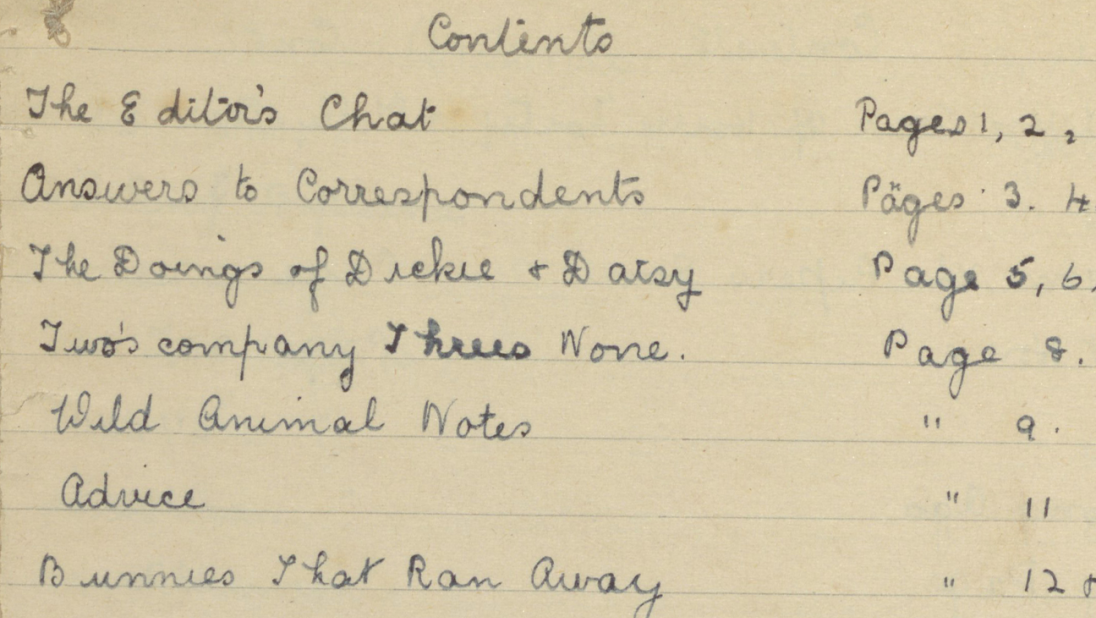 Contents
The Editor's Chat Pages 1, 2,
Answers to Correspondents Pages 3. 4
The Doings of Dickie & Daisy Page 5, 6.
Two's company Threes None. Page 8.
Wild Animal Notes " 9.
Advice " 11
Bunnies That Ran Away " 12 &